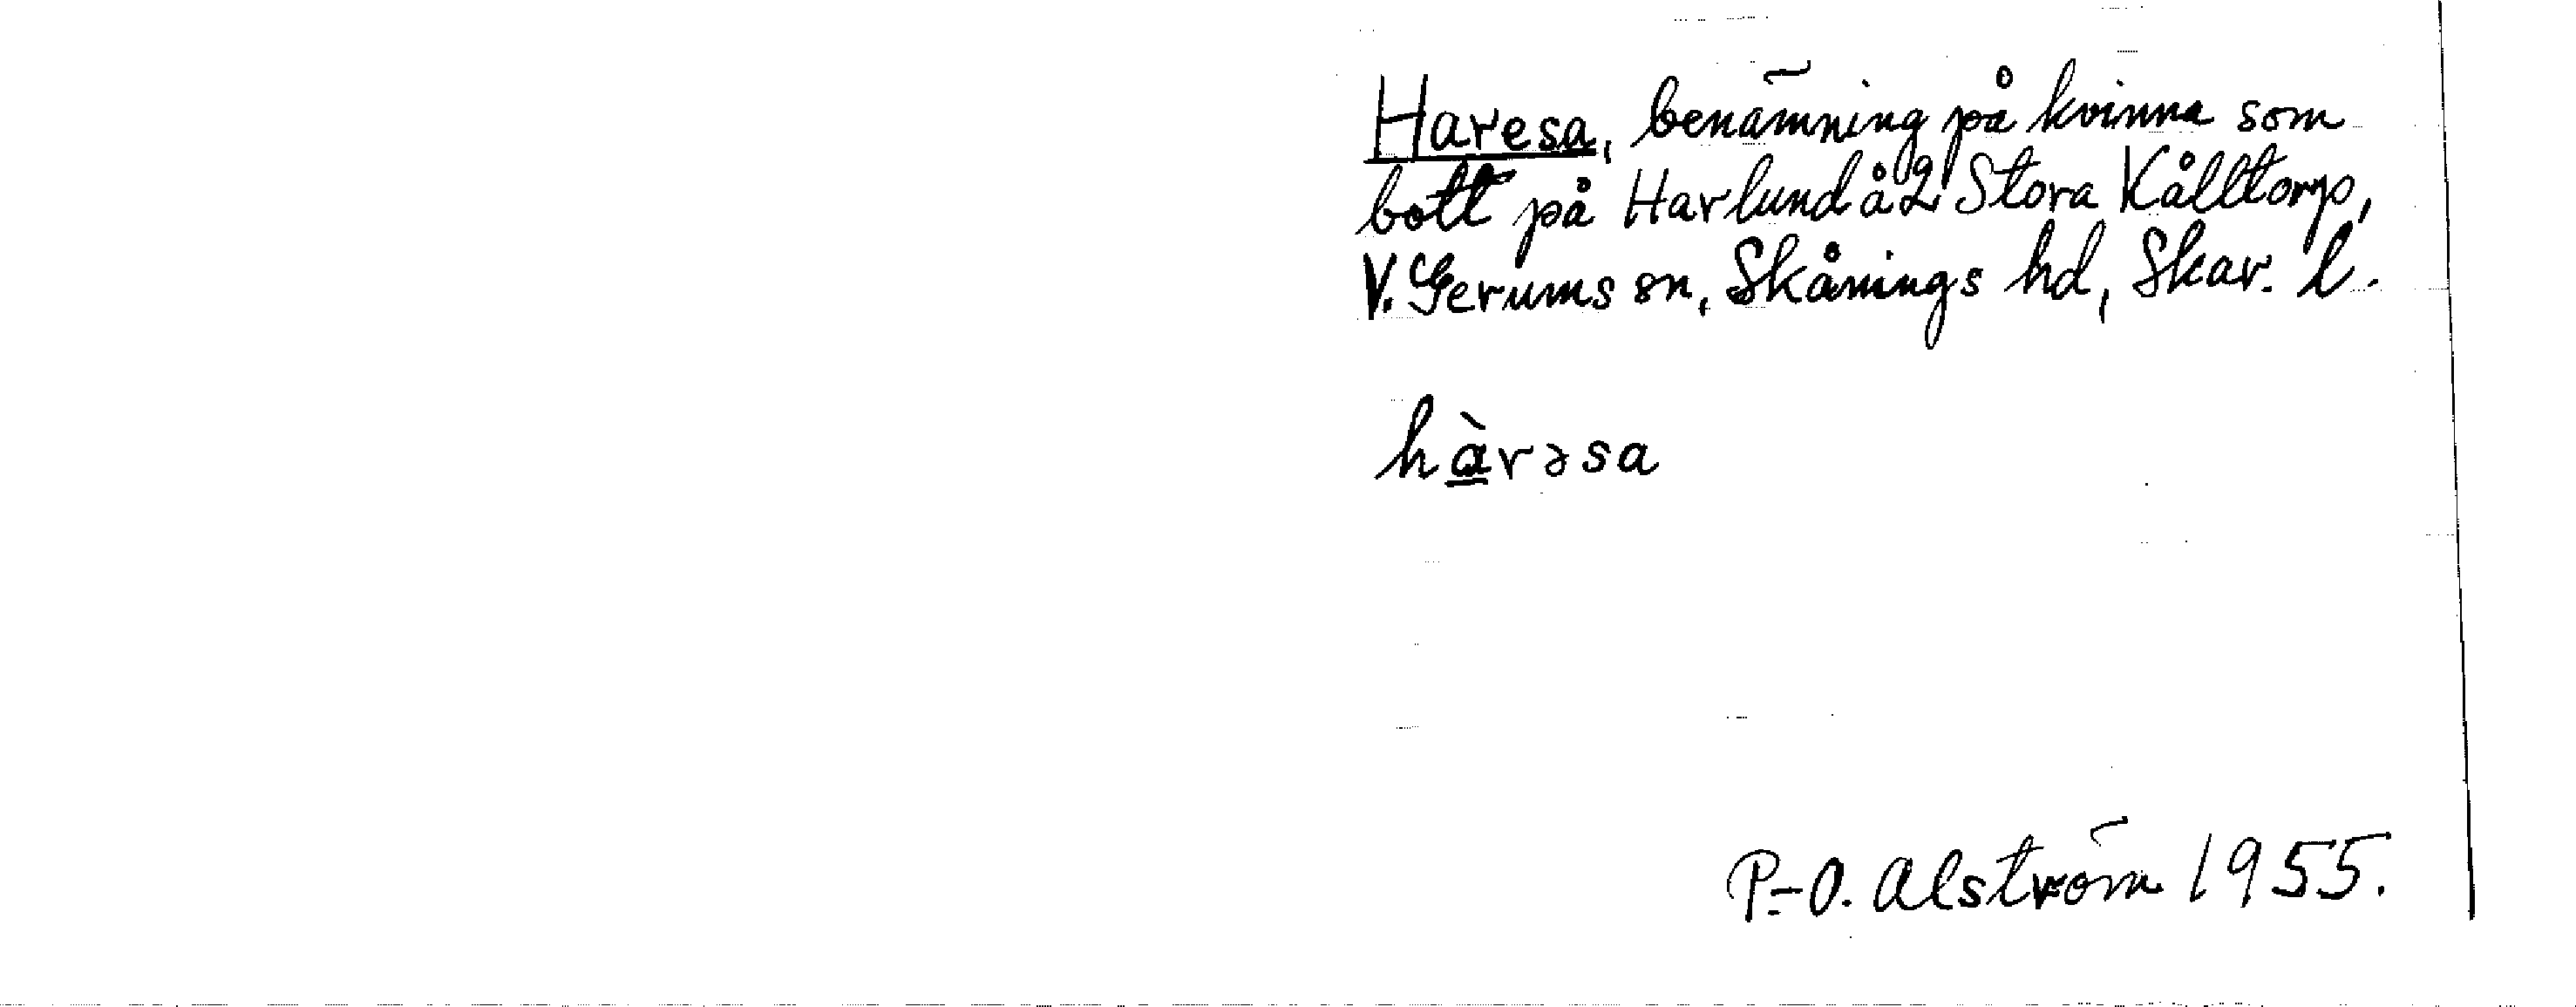 Haresa, benämning på kvinna som
bott på Harlund å 2 Stora Kålltorp,
V. Gerums sn, Skånings hd, Skar. l.
hàrəsa
P.-O. Alström 1955.